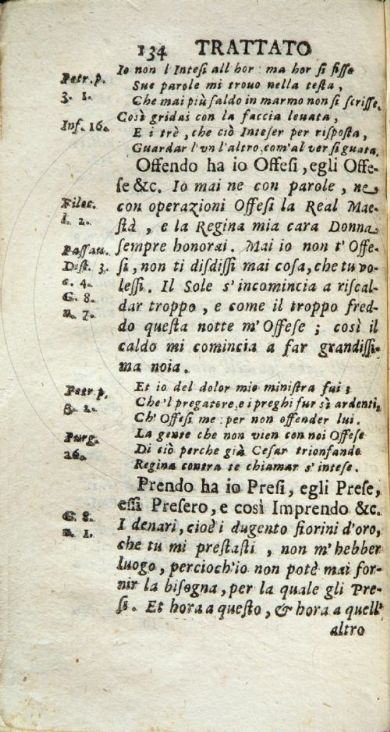 134 TRATTATO
Io non l'Intesi all hor: ma hor sì fisse
Petr. p. Sue parole mi trouo nella testa,
3. 1. Che mai più saldo in marmo non si scrisse.
Così gridai con la faccia leuata,
Inf. 16. E i trè, che ciò Inteser per risposta,
Guardar l'vn l'altro, com'al ver si guata.
Offendo ha io Offesi, egli Offe-
se &c. Io mai ne con parole, ne
Filoc. con operazioni Offesi la Real Mae-
l. 2. stà, e la Regina mia cara Donna
Passau. sempre honorai. Mai io non t'Offe-
Dist. 3. si, non ti disdissi mai cosa, che tu vo-
c. 4. lessi. Il Sole s'incomincia a riscal-
G. 8. dar troppo, e come il troppo fred-
n. 7. do questa notte m'Offese; così il
caldo mi comincia a far grandissi-
ma noia.
Petr. p. Et io del dolor mio ministra fui:
3. 1. Che'l pregatore, e i preghi fur sì ardenti,
Ch'Offesi me: per non offender lui.
Purg. La gente che non vien con noi Offese
26. Di ciò perche già Cesar trionfando
Regina contra se chiamar s'intese.
Prendo ha io Presi, egli Prese,
essi Presero, e così Imprendo &c.
G. 8. I denari, cioè i dugento fiorini d'oro,
n. 1. che tu mi prestasti, non m'hebber
luogo, percioch'io non potè mai for-
nir la bisogna, per la quale gli Pre-
si. Et hora a questo, & hora a quell'
altro